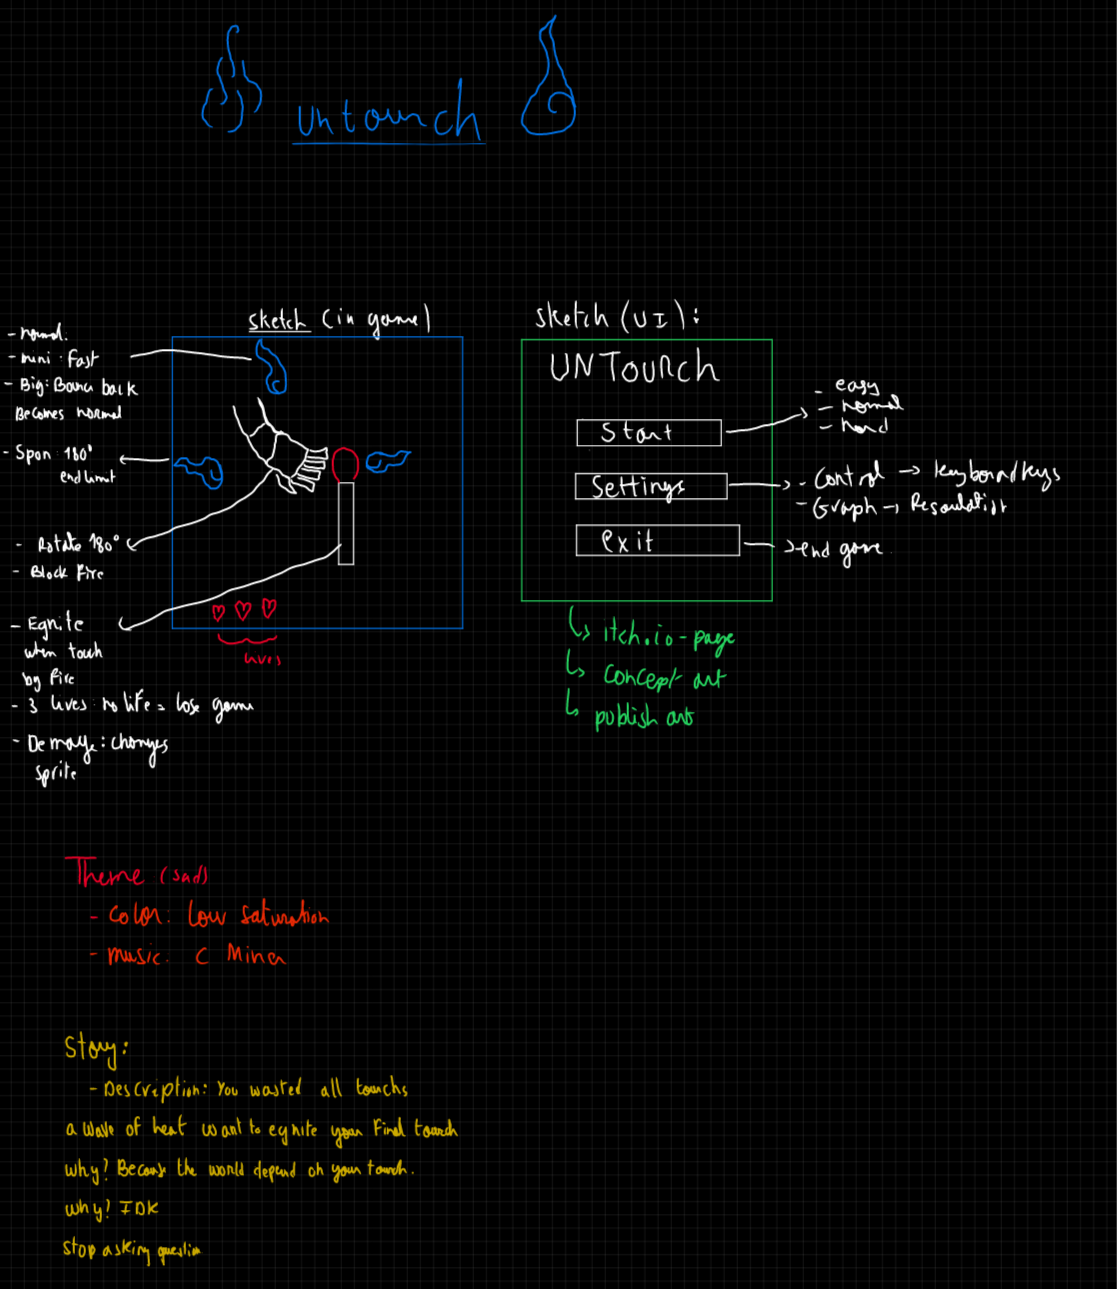 Untourch
sketch (in game)
- normal.
- mini: Fast
- Big: Bounce back
Becomes normal
- Spon: 180°
end limit
- Rotate 180°
- Block Fire
- Egnite
when touch
by fire
- 3 lives: no life = lose game
- Demage: changes
sprite
lives
Sketch (UI):
UNTourch
Start
Settings
exit
- easy
- normal
- hard
- Control → Keyboard/keys
- Graph →
end game
↳ itch.io-page
↳ concept art
↳ publish art
Theme (sad)
- color: Low saturation
- music: C Minor
Story:
- Description: You wasted all tourchs
a wave of heat want to egnite your Final tourch
why? Because the world depend on your tourch.
why? IDK
stop asking question